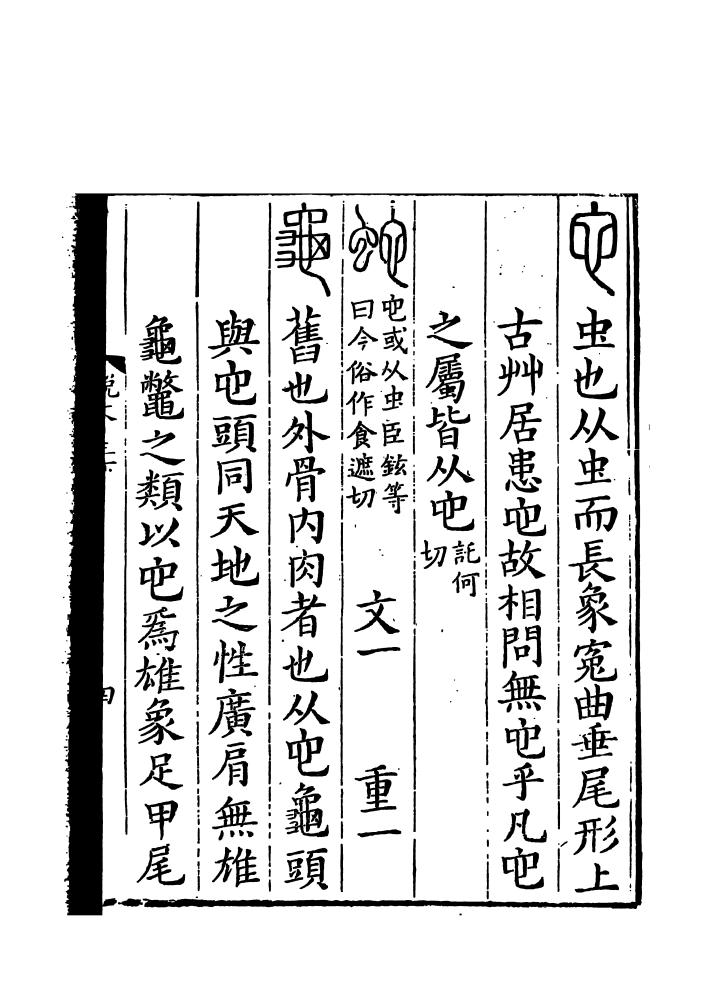 它虫也从虫而長象寃曲垂尾形上
古艸居患它故相問無它乎凡它
之屬皆从它託何切
蛇它或从虫臣鉉等曰今俗作食遮切 文一 重一
龜舊也外骨内肉者也从它龜頭
與它頭同天地之性廣肩無雄
龜鼈之類以它爲雄象足甲尾